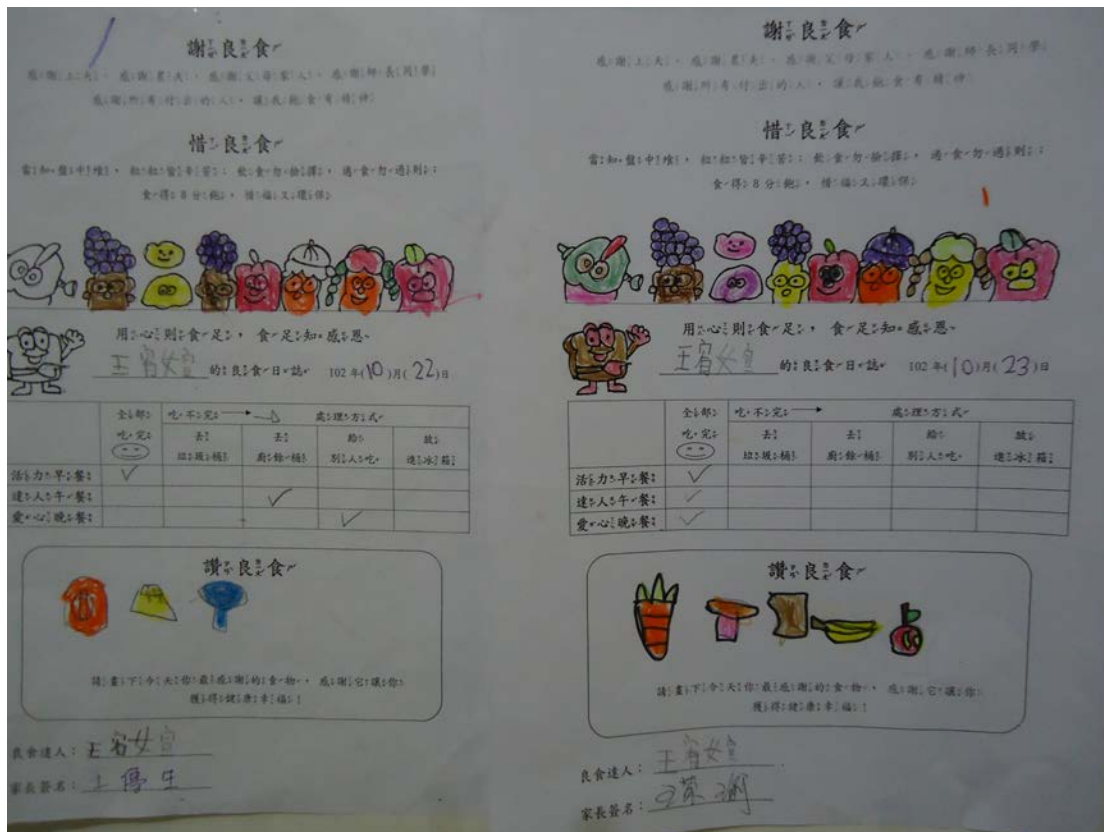 謝良食
感謝上天、感謝農夫、感謝父母家人、感謝師長同學
感謝所有付出的人,讓我飽食有精神
惜良食
當知盤中飧,粒粒皆辛苦;飲食勿撿擇,過食勿過則;
食得8分飽,惜福又環保
用心則食足,食足知感恩
王宥媗 的良食日誌 102年(10)月(22)日
全部吃完 吃不完 → 處理方式
去垃圾桶 去廚餘桶 給別人吃 放進冰箱
活力早餐 ✓
達人午餐 ✓
愛心晚餐 ✓
讚良食
請畫下今天你最感謝的食物,感謝它讓你
獲得健康幸福!
良食達人:王宥媗
家長簽名:
謝良食
感謝上天、感謝農夫、感謝父母家人、感謝師長同學
感謝所有付出的人,讓我飽食有精神
惜良食
當知盤中飧,粒粒皆辛苦;飲食勿撿擇,過食勿過則;
食得8分飽,惜福又環保
用心則食足,食足知感恩
王宥媗 的良食日誌 102年(10)月(23)日
全部吃完 吃不完 → 處理方式
去垃圾桶 去廚餘桶 給別人吃 放進冰箱
活力早餐 ✓
達人午餐 ✓
愛心晚餐 ✓
讚良食
請畫下今天你最感謝的食物,感謝它讓你
獲得健康幸福!
良食達人:王宥媗
家長簽名: